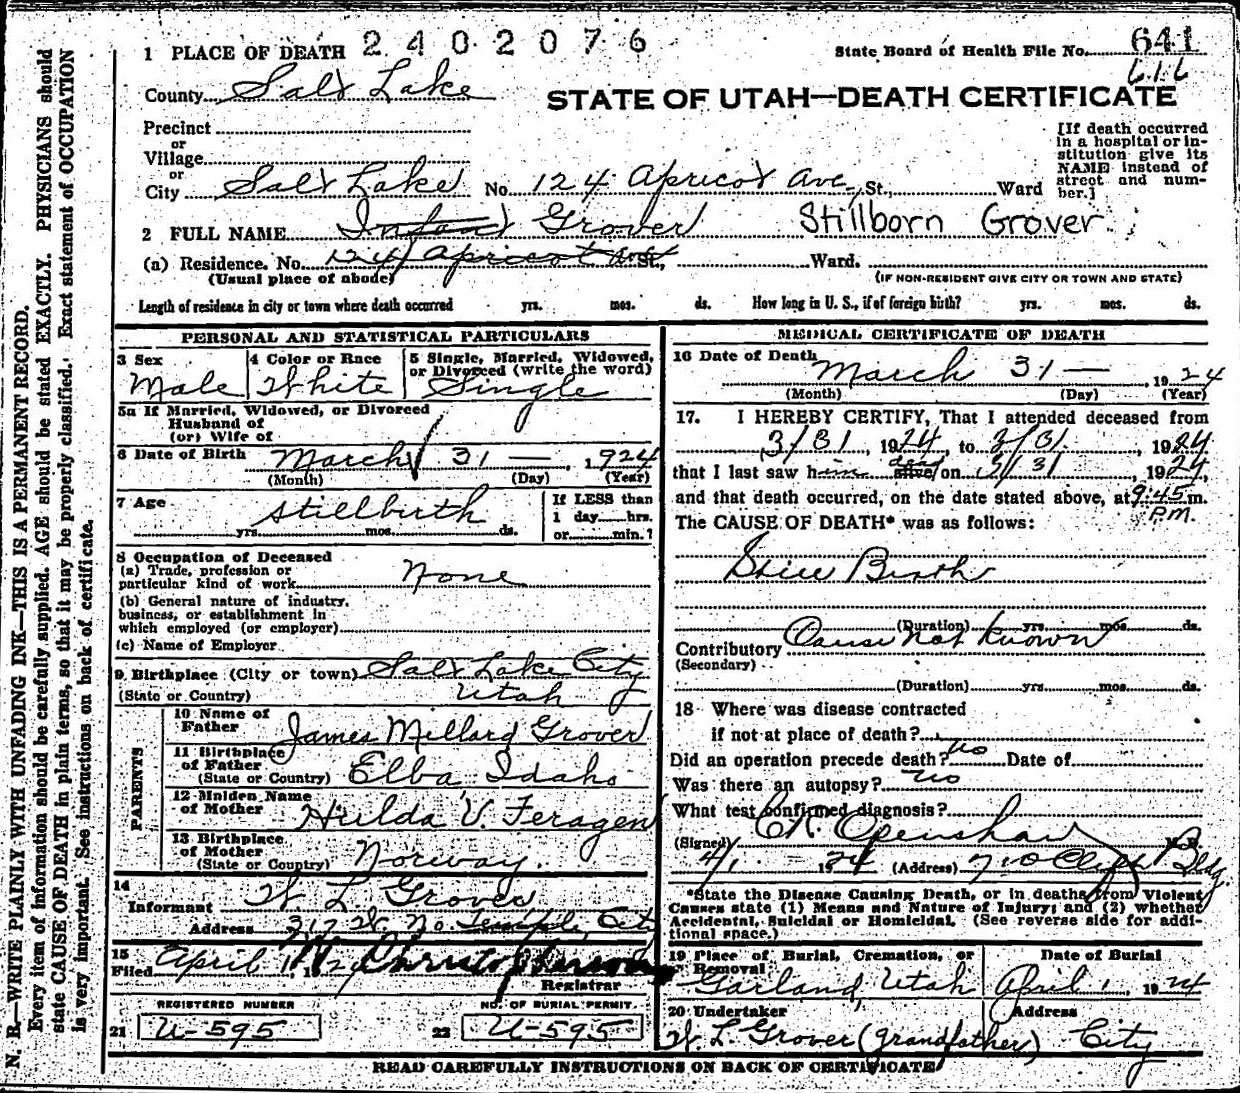 1 PLACE OF DEATH 2402076
State Board of Health File No. 641
616
County Salt Lake
STATE OF UTAH—DEATH CERTIFICATE
Precinct
or
Village
or
City Salt Lake No. 124 Apricot Ave., St., Ward
[If death occurred in a hospital or institution give its NAME instead of street and number.]
2 FULL NAME Infant Grover Stillborn Grover
(a) Residence. No. 124 Apricot St., Ward.
(Usual place of abode) (IF NON-RESIDENT GIVE CITY OR TOWN AND STATE)
Length of residence in city or town where death occurred yrs. mos. ds. How long in U. S., if of foreign birth? yrs. mos. ds.
PERSONAL AND STATISTICAL PARTICULARS
3 Sex Male
4 Color or Race White
5 Single, Married, Widowed, or Divorced (write the word) Single
5a If Married, Widowed, or Divorced
Husband of
(or) Wife of
6 Date of Birth March 31 — , 1924
(Month) (Day) (Year)
7 Age stillbirth
yrs. mos. ds.
If LESS than
1 day hrs.
or min.?
8 Occupation of Deceased
(a) Trade, profession or
particular kind of work None
(b) General nature of industry,
business, or establishment in
which employed (or employer)
(c) Name of Employer
9 Birthplace (City or town) Salt Lake City
(State or Country) Utah
PARENTS
10 Name of
Father James Millard Grover
11 Birthplace
of Father
(State or Country) Elba Idaho
12 Maiden Name
of Mother Hulda V. Feragen
13 Birthplace
of Mother
(State or Country) Norway.
14
Informant W L Grover
Address 317 W. No. Temple, City
15
Filed April 1 1924
Registrar
REGISTERED NUMBER
21 U-595
NO. OF BURIAL PERMIT.
22 U-595
MEDICAL CERTIFICATE OF DEATH
16 Date of Death March 31 — , 1924
(Month) (Day) (Year)
17. I HEREBY CERTIFY, That I attended deceased from
3/31, 1924, to 3/31, 1924,
that I last saw him alive dead on 3/31, 1924,
and that death occurred, on the date stated above, at 9:45 m.
P.M.
The CAUSE OF DEATH* was as follows:
Still Birth
(Duration) yrs. mos. ds.
Contributory Cause not known
(Secondary)
(Duration) yrs. mos. ds.
18 Where was disease contracted
if not at place of death?
Did an operation precede death? no Date of
Was there an autopsy? no
What test confirmed diagnosis?
(Signed) C.N. Openshaw M. D.
4/1 1924 (Address) 710 Cliff Bldg
*State the Disease Causing Death, or in deaths from Violent
Causes state (1) Means and Nature of Injury; and (2) whether
Accidental, Suicidal or Homicidal. (See reverse side for addi-
tional space.)
19 Place of Burial, Cremation, or
Removal Garland, Utah
Date of Burial
April 1, 1924
20 Undertaker Address
W. L. Grover (grandfather) City
READ CAREFULLY INSTRUCTIONS ON BACK OF CERTIFICATE
N. B.—WRITE PLAINLY WITH UNFADING INK—THIS IS A PERMANENT RECORD.
Every item of information should be carefully supplied. AGE should be stated EXACTLY. PHYSICIANS should
state CAUSE OF DEATH in plain terms, so that it may be properly classified. Exact statement of OCCUPATION
is very important. See instructions on back of certificate.